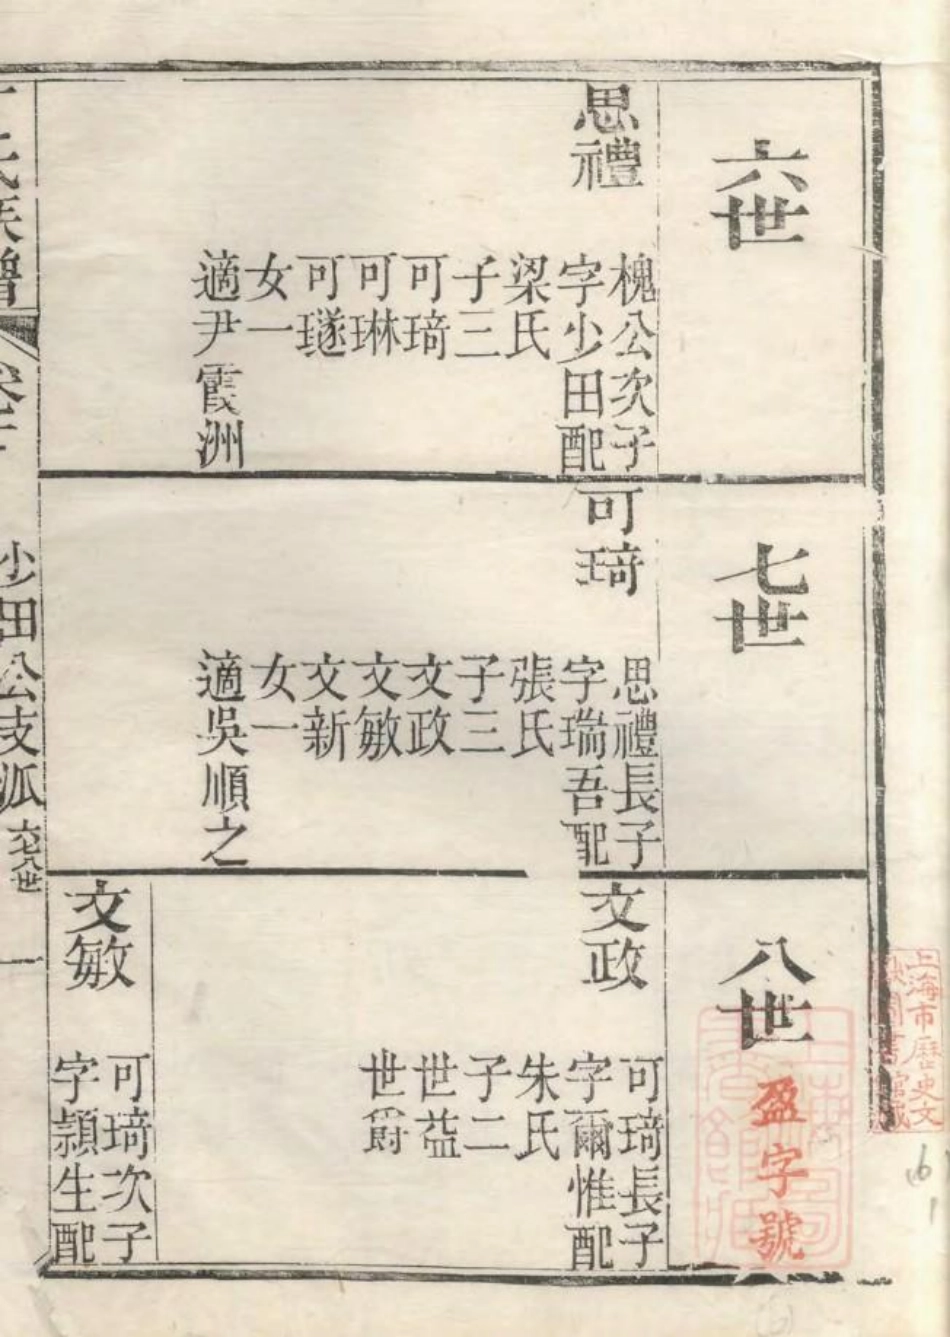 六世
思禮
槐公次子
字少田配
梁氏
子三
可琦
可琳
可璲
女一
適尹霞洲
七世
可琦
思禮長子
字瑞吾配
張氏
子三
文政
文敏
文新
女一
適吳順之
八世
文政
可琦長子
字爾惟配
朱氏
子二
世益
世爵
文敏
可琦次子
字頴生配
氏族譜
少田公支派
六七八世
一
盈字號
上海市歷史文